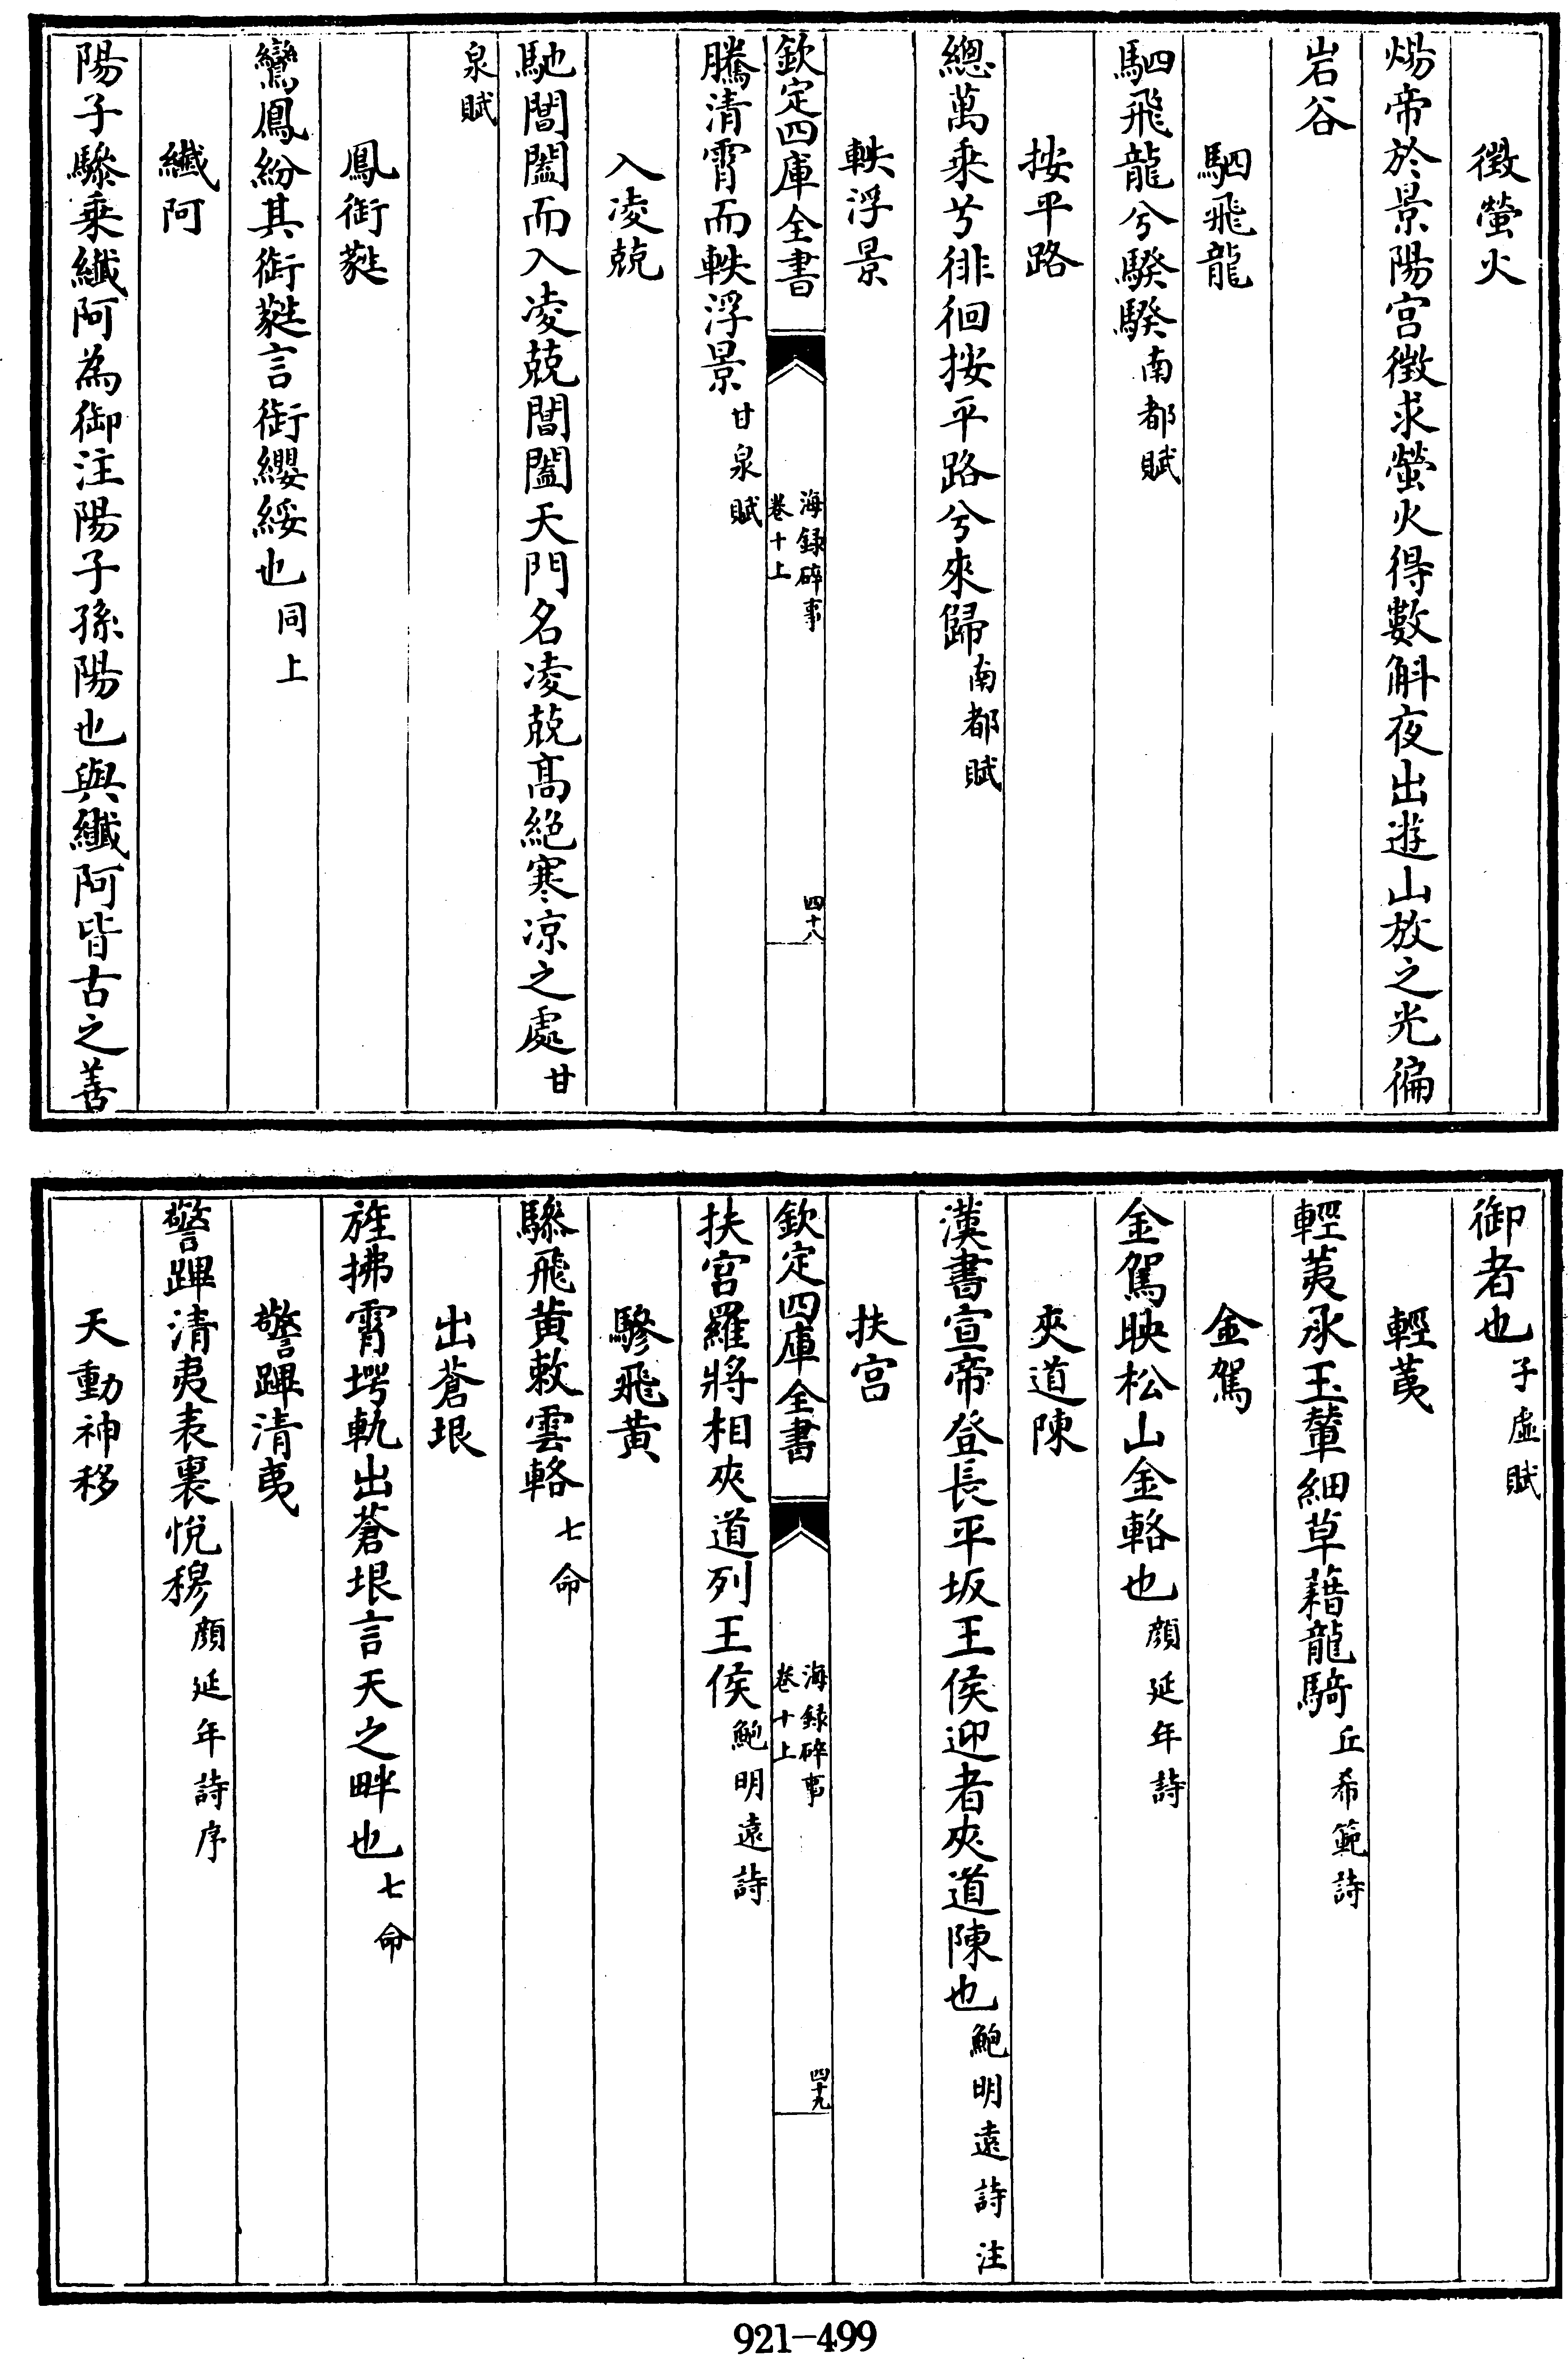 徴螢火
煬帝於景陽宫徴求螢火得數斛夜出遊山放之光徧
岩谷
駟飛龍
駟飛龍兮騤騤南都賦
按平路
總萬乘兮徘徊按平路兮來歸南都賦
軼浮景
欽定四庫全書
海録碎事
卷十上
四十八
騰清霄而軼浮景甘泉賦
入凌兢
馳閶闔而入凌兢閶闔天門名凌兢高絶寒凉之處甘
泉賦
鳳銜蕤
鸞鳳紛其銜蕤言銜纓綏也同上
纎阿
陽子驂乘纎阿為御注陽子孫陽也與纎阿皆古之善
御者也子虚賦
輕荑
輕荑承玉輦細草藉龍騎丘希範詩
金駕
金駕映松山金輅也顔延年詩
夾道陳
漢書宣帝登長平坂王侯迎者夾道陳也鮑明遠詩注
扶宫
欽定四庫全書
海録碎事
卷十上
四十九
扶宫羅將相夾道列王侯鮑明遠詩
驂飛黄
驂飛黄敕雲輅七命
出蒼垠
旌拂霄堮軌出蒼垠言天之畔也七命
警蹕清夷
警蹕清夷表裏悦穆顔延年詩序
天動神移
921-499